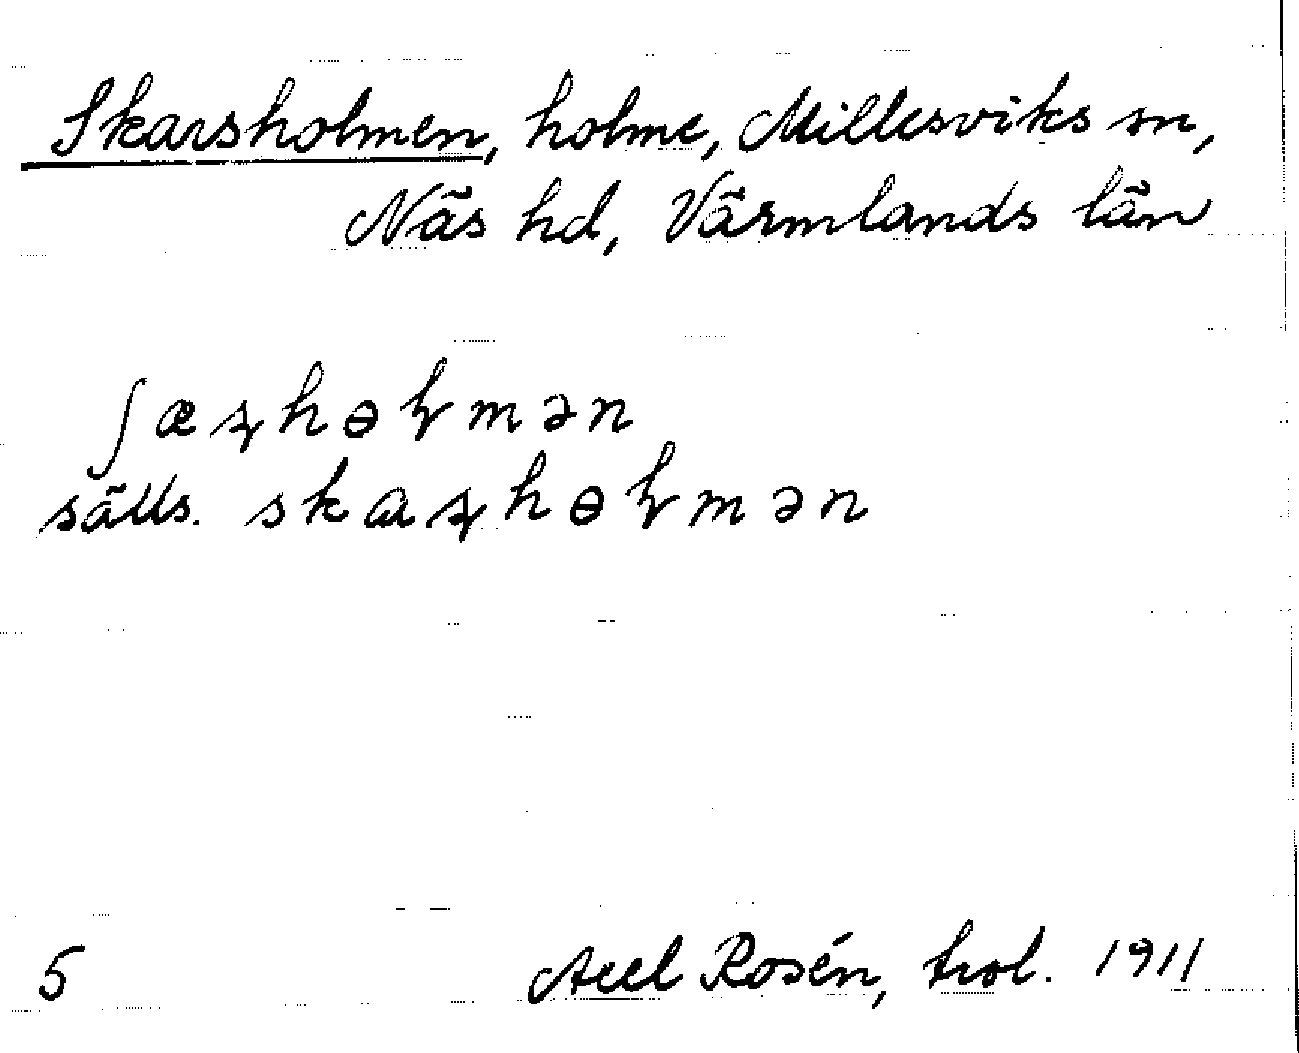 Skarsholmen, holme, Millesviks sn,
Näs hd, Värmlands län
ʃæʂhɵɽmən
sälls. skaʂhɵɽmən
5 Axel Rosén, trol. 1911